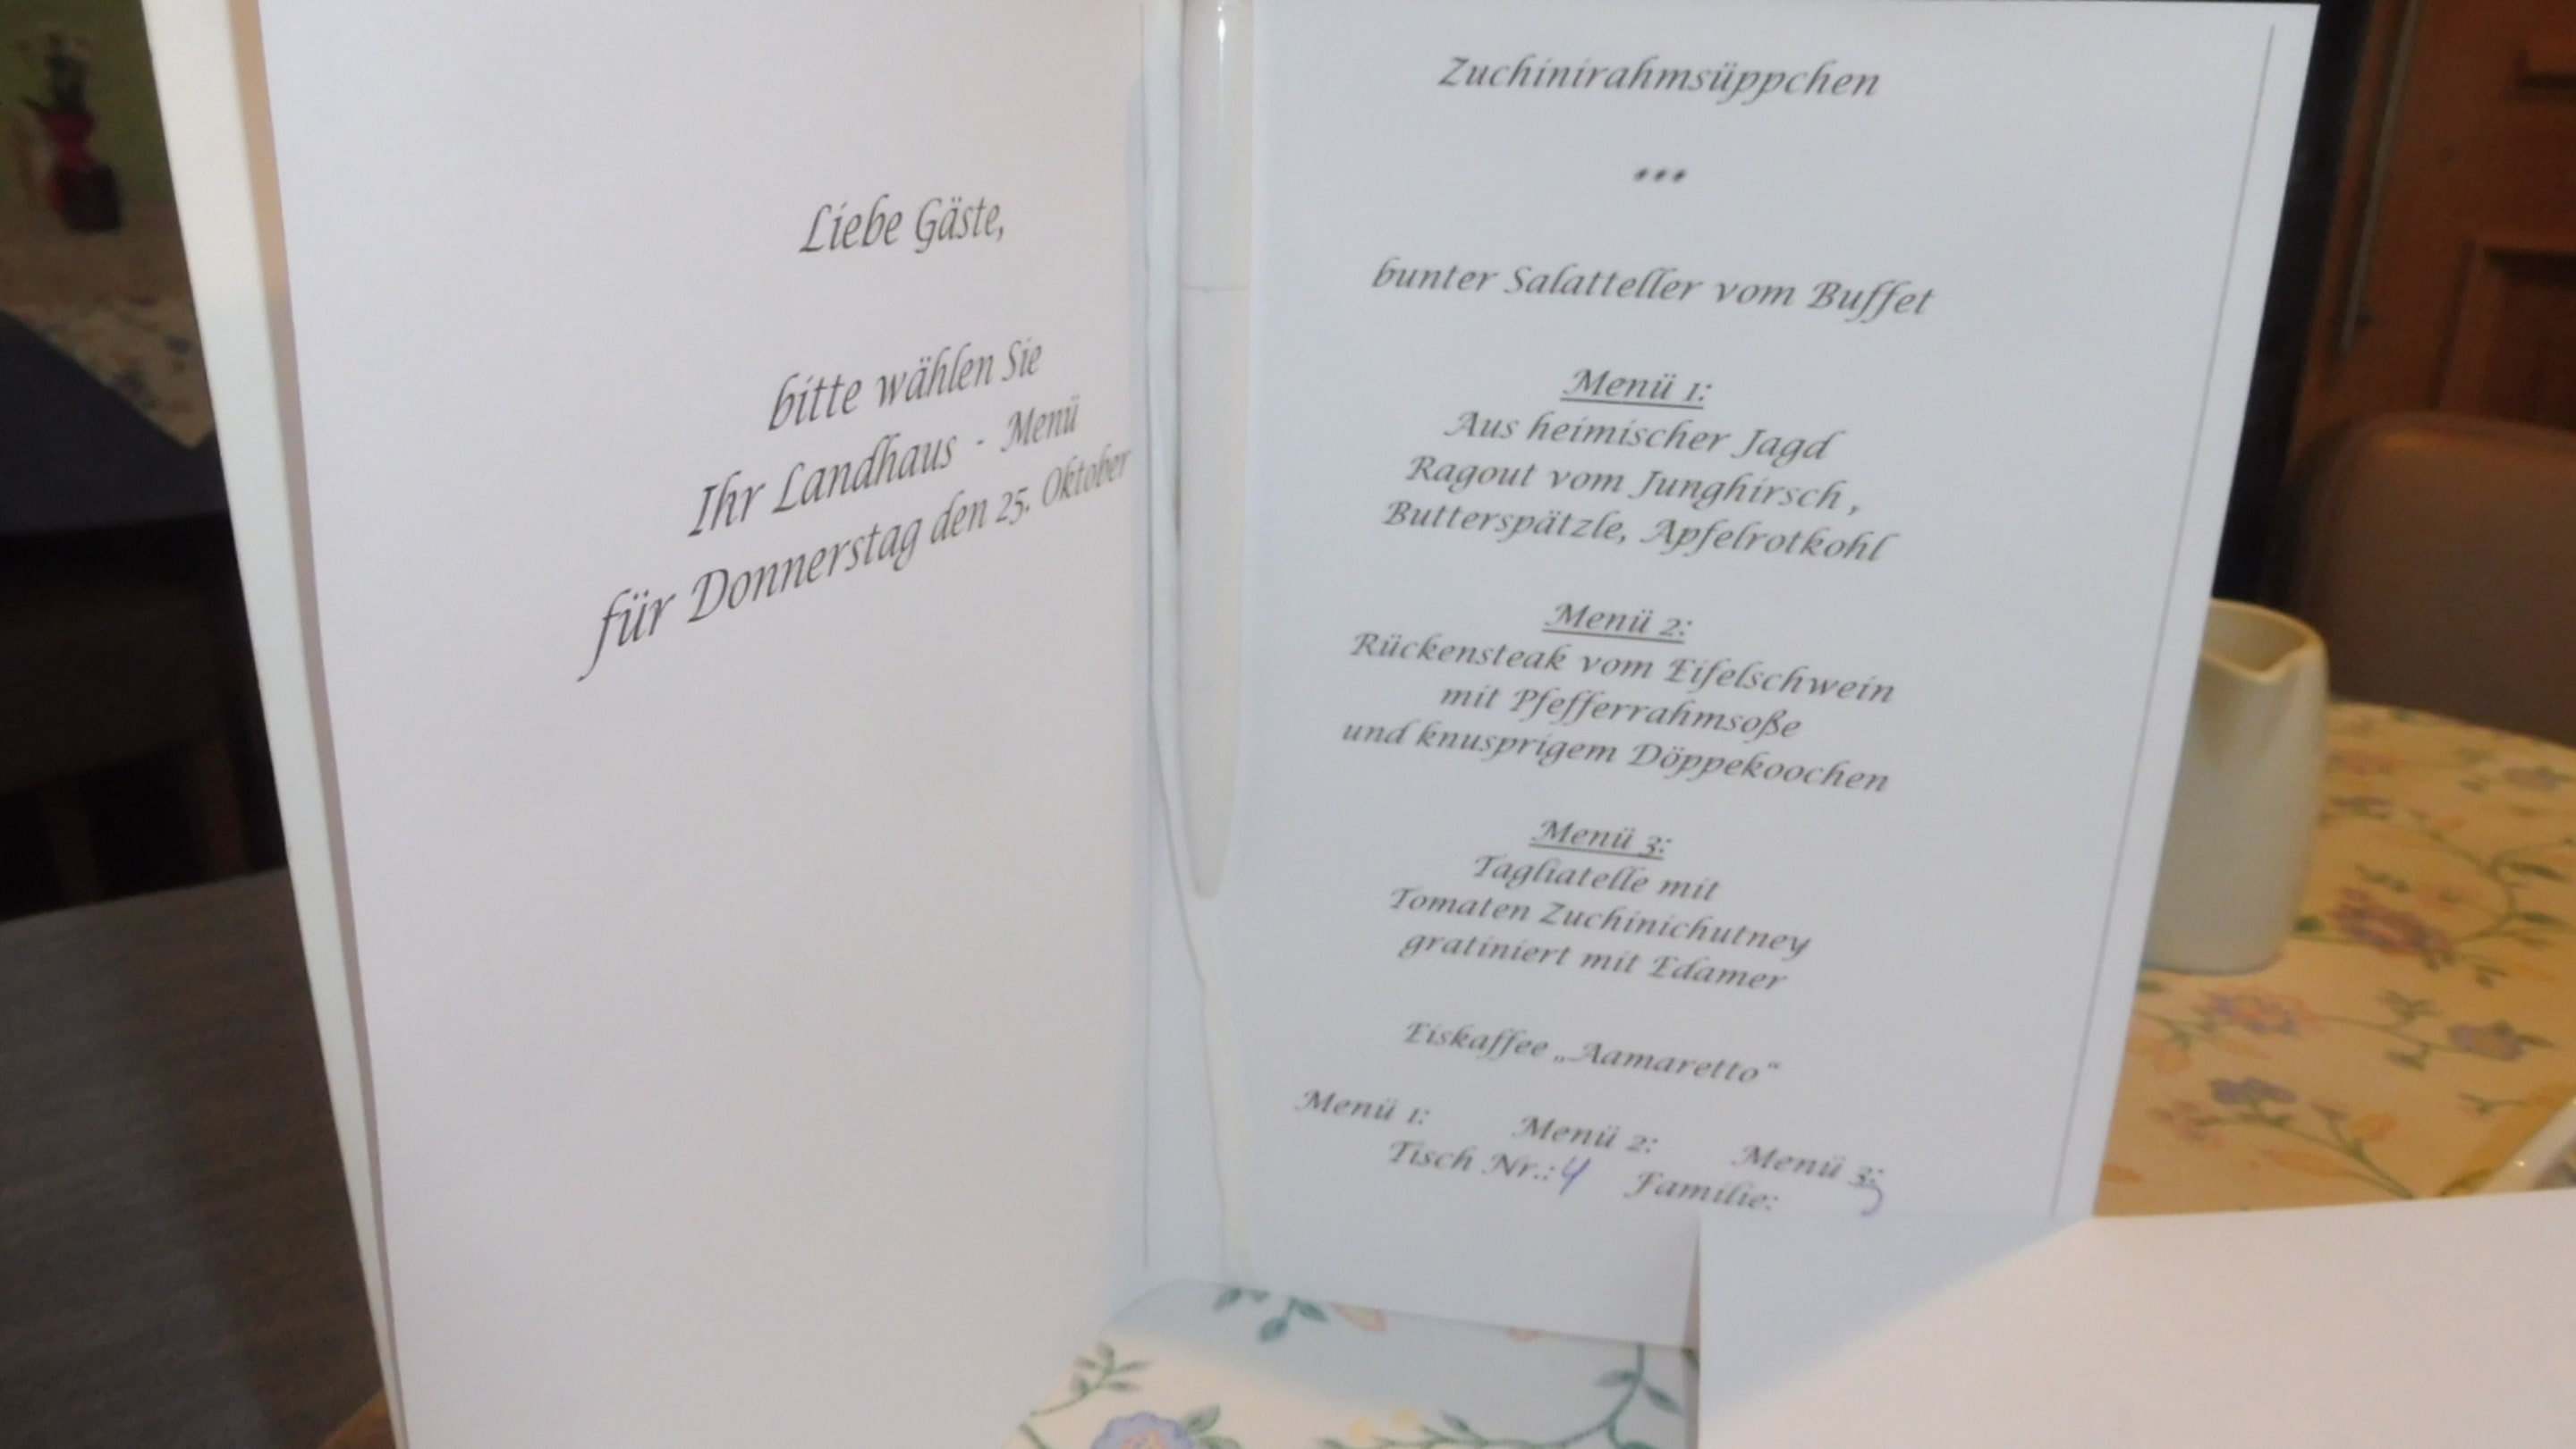 Liebe Gäste,
bitte wählen Sie
Ihr Landhaus - Menü
für Donnerstag den 25. Oktober
Zuchinirahmsüppchen
***
bunter Salatteller vom Buffet
Menü 1:
Aus heimischer Jagd
Ragout vom Junghirsch ,
Butterspätzle, Apfelrotkohl
Menü 2:
Rückensteak vom Eifelschwein
mit Pfefferrahmsoße
und knusprigem Döppekoochen
Menü 3:
Tagliatelle mit
Tomaten Zuchinichutney
gratiniert mit Edamer
Eiskaffee „Aamaretto“
Menü 1: Menü 2: Menü 3:
Tisch Nr.: 4 Familie: